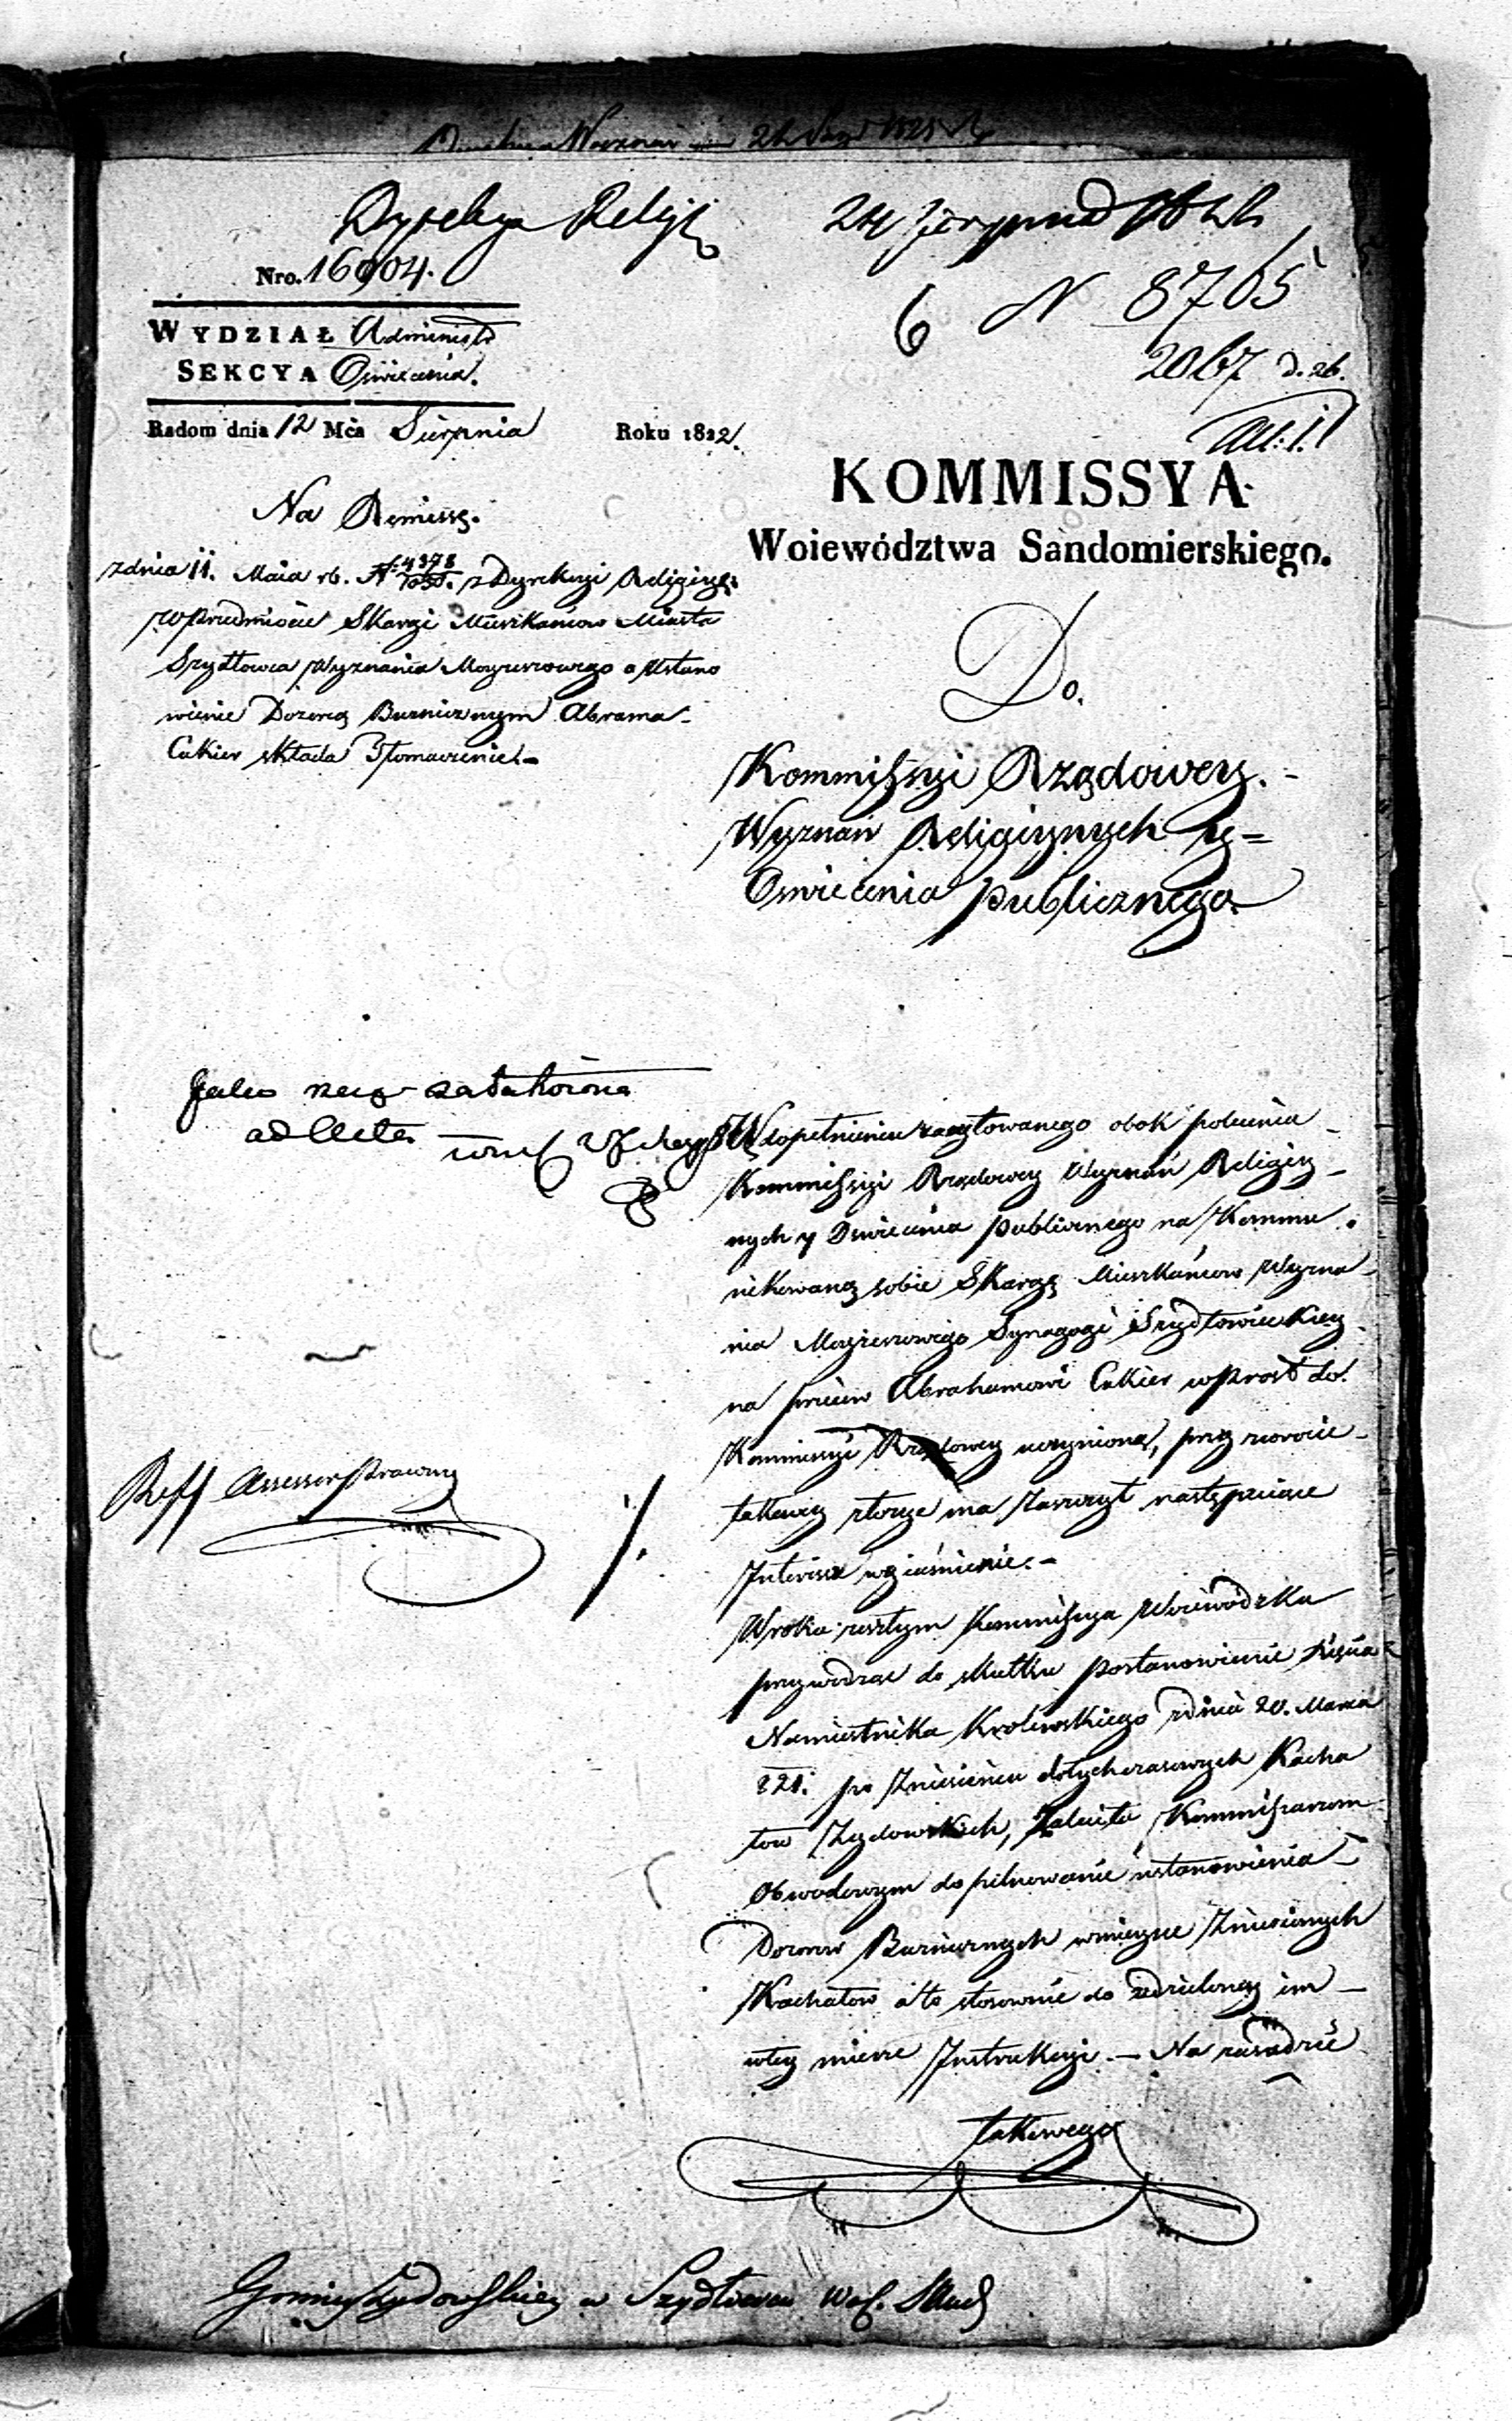 Dyrekcya Religii
24 Sierpnia
Nro. 16904.
6 N 8765
2067 d. 26.
WYDZIAŁ Administr
SEKCYA Oświecenia.
Radom dnia 12 Mca Sierpnia Roku 1822.
All: 1.
KOMMISSYA
Woiewództwa Sandomierskiego.
Na Remissę.
z dnia 11. Maia rb. N. 4378 z Dyrekcyi Religiyney
w przedmiocie Skargi Mieszkańcow Miasta
Szydłowca Wyznania Moyżeszowego o ustano
wienie Dozorcą Bużnicznym Abrama
Cukier składa Tłomaczenie.
Do
Kommissyi Rządowey
Wyznań Religiynych y
Oswiecenia Publicznego.
ad Acta
W dopełnieniu zacytowanego obok polecenia
Kommissyi Rządowey Wyznań Religiy
nych y Oswiecenia publicznego na Kommu
nikowaną sobie Skargę Mieszkańcow Wyzna
nia Moyżeszowego Synagogi Szydłowieckiey
na przeciw Abrahamowi Cukier wprost do
Kommissyi Rządowey uczynioną, przy zwrocie
takowey złożyć ma zaszczyt następuiące
Interessu wyiaśnienie.
W roku zeszłym Kommissya Woiewódzka
przywodząc do skutku postanowienie Xięcia
Namiestnika Krolewskiego z dnia 20. Marca
821. po zniesieniu dotychczasowych Kacha
łow Żydowskich, zaleciła Kommissarzom
Obwodowym dopilnowanie ustanowienia
Dozorow Bużnicznych w mieysce zniesionych
Kachałow a to stosownie do udzieloney im
w tey mierze Instrukcyi. — Na zasadzie
takowego
Reff Assessor Prawny
Gminy Żydowskiey w Szydłowcu Woj. Sand